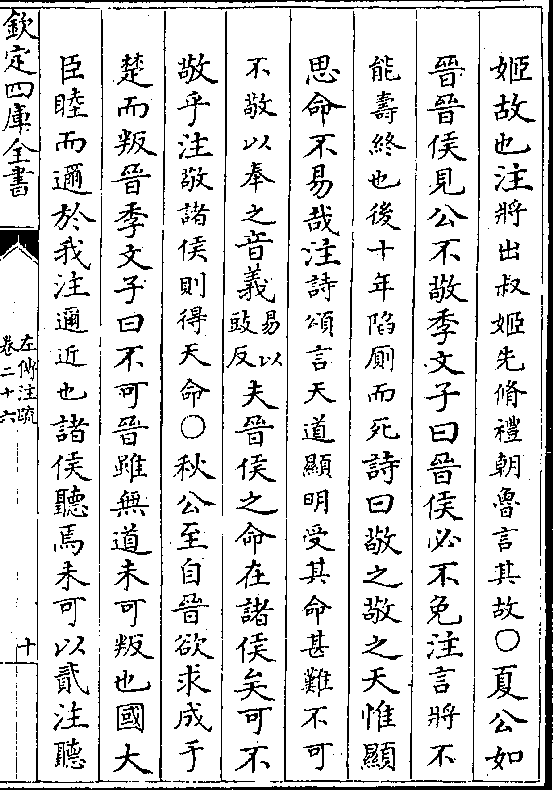 姬故也注將出叔姬先脩禮朝魯言其故○夏公如
晉晉侯見公不敬季文子曰晉侯必不免注言將不
能壽終也後十年陷厠而死詩曰敬之敬之天惟顯
思命不易哉注詩頌言天道顯明受其命甚難不可
不敬以奉之音義易以豉反夫晉侯之命在諸侯矣可不
敬乎注敬諸侯則得天命○秋公至自晉欲求成于
楚而叛晉季文子曰不可晉雖無道未可叛也國大
臣睦而邇於我注邇近也諸侯聽焉未可以貳注聽
欽定四庫全書
左傳注疏
卷二十六
十